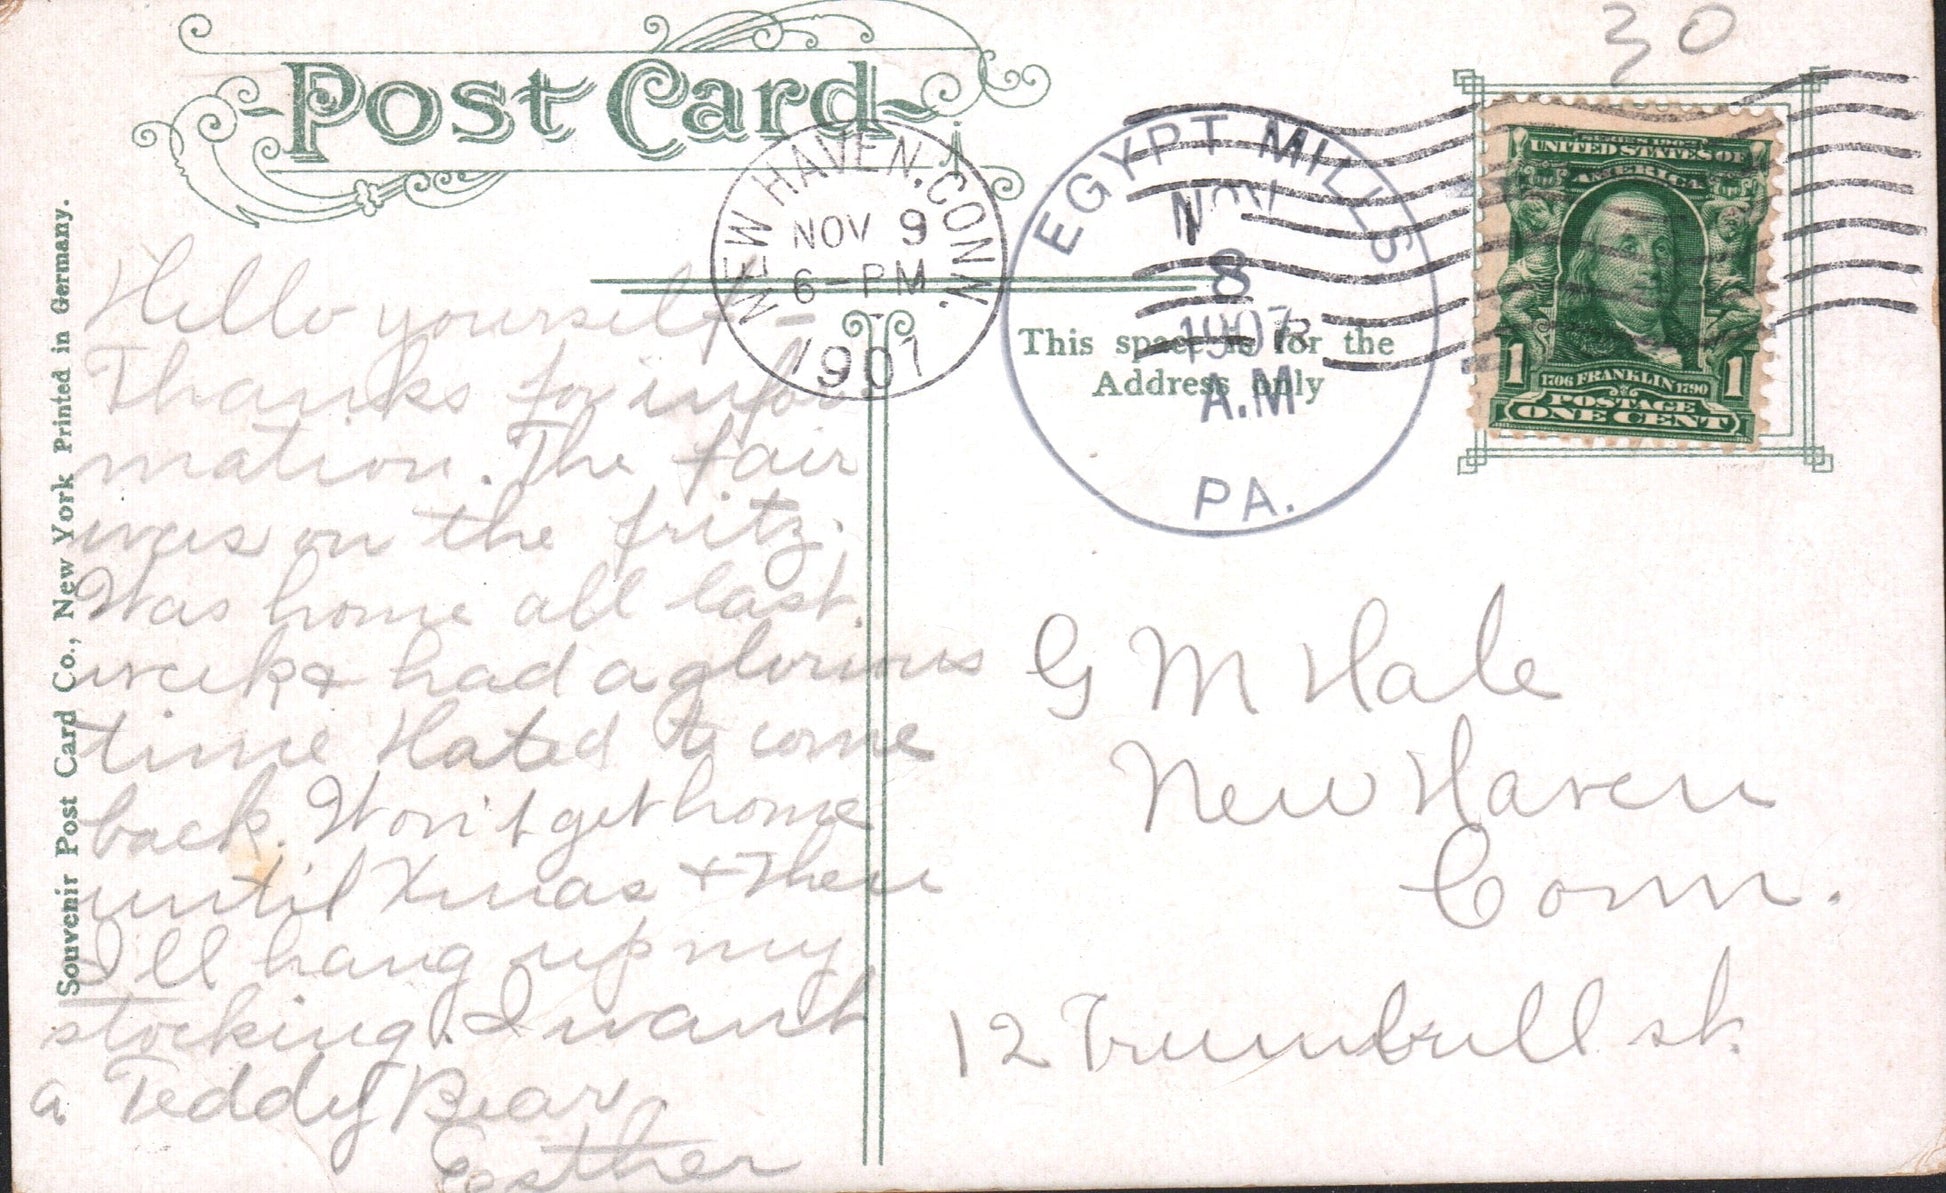 30
Post Card
NEW HAVEN, CONN.
NOV 9
6-PM
1907
EGYPT MILLS
NOV
8
1907
A.M
PA.
SERIES 1902
UNITED STATES OF
AMERICA
1 1
1706 FRANKLIN 1790
POSTAGE
ONE CENT
This space is for the
Address only
Souvenir Post Card Co., New York Printed in Germany.
Hello yourself –
Thanks for infor
mation. The fair
was on the fritz.
Was home all last
week & had a glorious
time Hated to come
back. Won't get home
until Xmas + then
I'll hang up my
stocking. I want
a Teddy Bear,
Esther
G M Hale
New Haven
Conn.
12 Trumbull st.